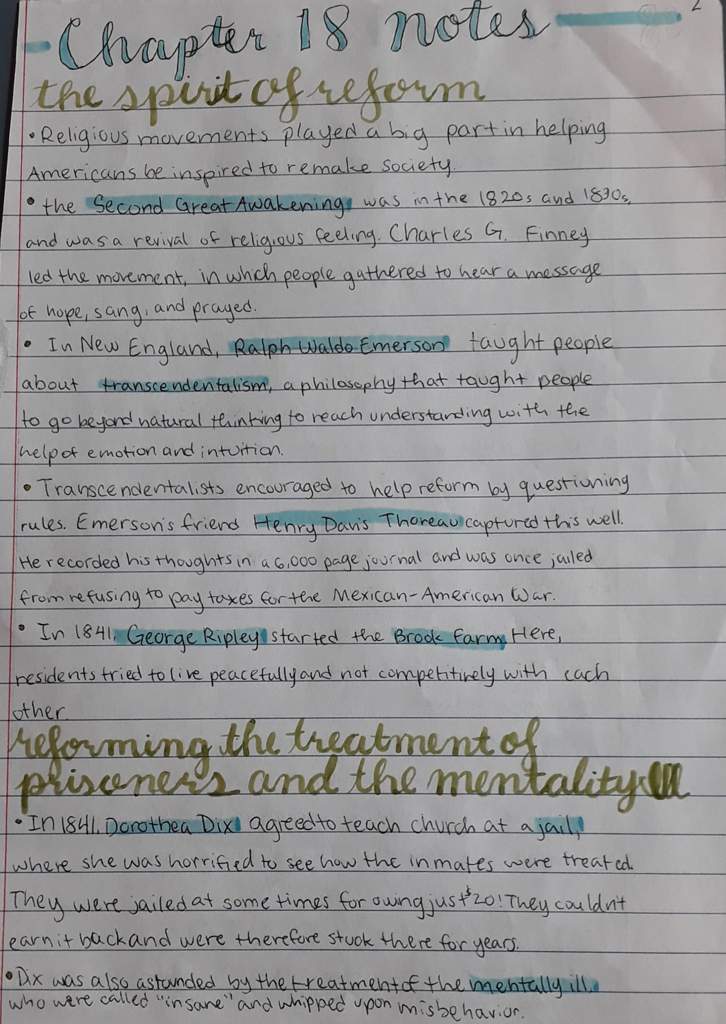 Chapter 18 notes
2
the spirit of reform
• Religious movements played a big part in helping
Americans be inspired to remake society.
• the Second Great Awakening, was in the 1820s and 1830s,
and was a revival of religious feeling. Charles G. Finney
led the movement, in which people gathered to hear a message
of hope, sang, and prayed.
• In New England, Ralph Waldo Emerson taught people
about transcendentalism, a philosophy that taught people
to go beyond natural thinking to reach understanding with the
help of emotion and intuition.
• Transcendentalists encouraged to help reform by questioning
rules. Emerson's friend Henry Davis Thoreau captured this well.
He recorded his thoughts in a 6,000 page journal and was once jailed
from refusing to pay taxes for the Mexican-American War.
• In 1841, George Ripley started the Brook Farm. Here,
residents tried to live peacefully and not competitively with each
other.
reforming the treatment of
prisoners and the mentality ill
• In 1841, Dorothea Dix agreed to teach church at a jail,
where she was horrified to see how the inmates were treated.
They were jailed at some times for owing just $20! They couldn't
earn it back and were therefore stuck there for years.
• Dix was also astounded by the treatment of the mentally ill.
who were called "insane" and whipped upon misbehavior.